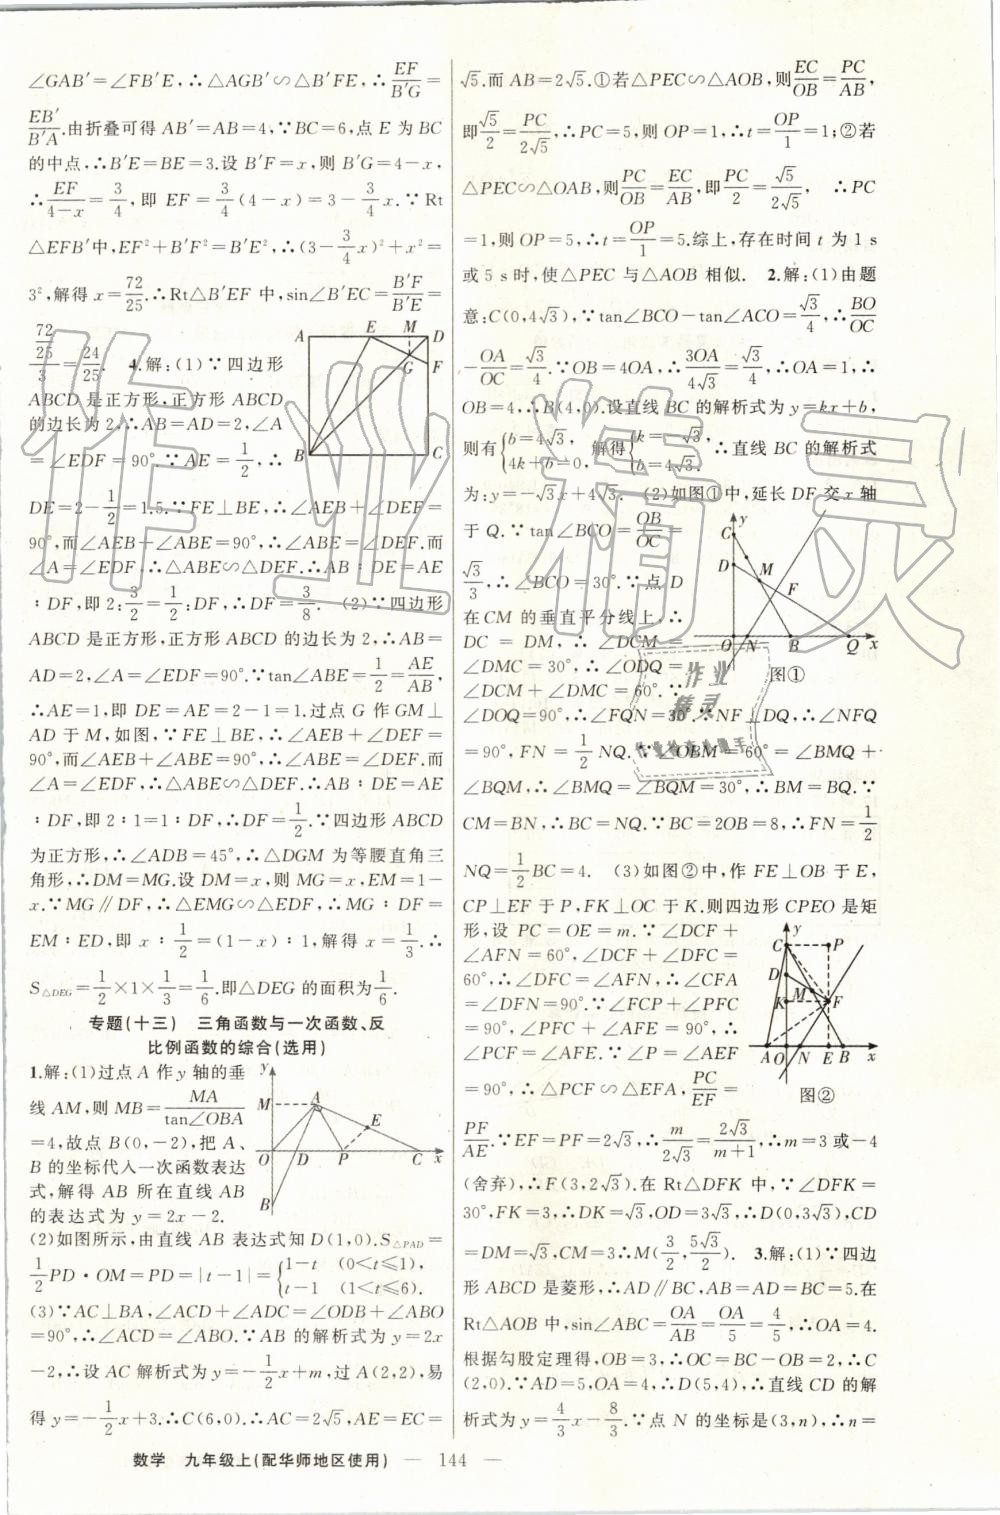 ∠GAB′=∠FB′E,∴△AGB′∽△B′FE,∴EF/B′G=
EB′/B′A.由折叠可得 AB′=AB=4,∵BC=6,点 E 为 BC
的中点,∴B′E=BE=3.设 B′F=x,则 B′G=4-x,
∴EF/(4-x)=3/4,即 EF=3/4(4-x)=3-3/4x.∵Rt
△EFB′中,EF²+B′F²=B′E²,∴(3-3/4x)²+x²=
3²,解得 x=72/25.∴Rt△B′EF 中,sin∠B′EC=B′F/B′E=
(72/25)/3=24/25. 4.解:(1)∵四边形
ABCD 是正方形,正方形 ABCD
的边长为 2,∴AB=AD=2,∠A
=∠EDF=90°.∵AE=1/2,∴
A E M D
G F
B C
DE=2-1/2=1.5.∵FE⊥BE,∴∠AEB+∠DEF=
90°,而∠AEB+∠ABE=90°,∴∠ABE=∠DEF.而
∠A=∠EDF,∴△ABE∽△DEF.∴AB∶DE=AE
∶DF,即 2:3/2=1/2:DF,∴DF=3/8. (2)∵四边形
ABCD 是正方形,正方形 ABCD 的边长为 2,∴AB=
AD=2,∠A=∠EDF=90°.∵tan∠ABE=1/2=AE/AB,
∴AE=1,即 DE=AE=2-1=1.过点 G 作 GM⊥
AD 于 M,如图,∵FE⊥BE,∴∠AEB+∠DEF=
90°,而∠AEB+∠ABE=90°,∴∠ABE=∠DEF.而
∠A=∠EDF,∴△ABE∽△DEF.∴AB∶DE=AE
∶DF,即 2∶1=1∶DF,∴DF=1/2.∵四边形 ABCD
为正方形,∴∠ADB=45°,∴△DGM 为等腰直角三
角形,∴DM=MG.设 DM=x,则 MG=x,EM=1-
x.∵MG∥DF,∴△EMG∽△EDF,∴MG∶DF=
EM∶ED,即 x∶1/2=(1-x)∶1,解得 x=1/3.∴
S△DEG=1/2×1×1/3=1/6.即△DEG 的面积为1/6.
专题(十三) 三角函数与一次函数、反
比例函数的综合(选用)
1.解:(1)过点 A 作 y 轴的垂
线 AM,则 MB=MA/tan∠OBA
=4,故点 B(0,-2),把 A、
B 的坐标代入一次函数表达
式,解得 AB 所在直线 AB
的表达式为 y=2x-2.
y
M A
E
O D P C x
B
(2)如图所示,由直线 AB 表达式知 D(1,0).S△PAD=
1/2PD·OM=PD=|t-1|={1-t (0<t≤1), t-1 (1<t≤6).
(3)∵AC⊥BA,∠ACD+∠ADC=∠ODB+∠ABO
=90°,∴∠ACD=∠ABO.∵AB 的解析式为 y=2x
-2,∴设 AC 解析式为 y=-1/2x+m,过 A(2,2),易
得 y=-1/2x+3.∴C(6,0).∴AC=2√5,AE=EC=
√5.而 AB=2√5.①若△PEC∽△AOB,则EC/OB=PC/AB,
即√5/2=PC/2√5,∴PC=5,则 OP=1,∴t=OP/1=1;②若
△PEC∽△OAB,则PC/OB=EC/AB,即PC/2=√5/2√5, ∴PC
=1,则 OP=5,∴t=OP/1=5.综上,存在时间 t 为 1 s
或 5 s时,使△PEC 与△AOB 相似. 2.解:(1)由题
意:C(0,4√3),∵tan∠BCO-tan∠ACO=√3/4,∴BO/OC
-OA/OC=√3/4.∵OB=4OA,∴3OA/4√3=√3/4,∴OA=1,∴
OB=4,∴B(4,0).设直线 BC 的解析式为 y=kx+b,
则有{b=4√3, 4k+b=0, 解得{k=-√3, b=4√3. ∴直线 BC 的解析式
为:y=-√3x+4√3. (2)如图①中,延长 DF 交 x 轴
于 Q.∵tan∠BCO=OB/OC=
√3/3,∴∠BCO=30°.∵点 D
在 CM 的垂直平分线上,∴
DC = DM,∴ ∠DCM =
∠DMC = 30°,∴∠ODQ =
∠DCM+∠DMC=60°.∵
C y
D M F
O N B Q x
图①
∠DOQ=90°,∴∠FQN=30°.∵NF⊥DQ,∴∠NFQ
=90°,FN=1/2NQ.∵∠OBM=60°=∠BMQ+
∠BQM,∴∠BMQ=∠BQM=30°,∴BM=BQ.∵
CM=BN,∴BC=NQ.∵BC=2OB=8,∴FN=1/2
NQ=1/2BC=4. (3)如图②中,作 FE⊥OB 于 E,
CP⊥EF 于 P,FK⊥OC 于 K.则四边形 CPEO 是矩
形,设 PC=OE=m.∵∠DCF+
∠AFN = 60°,∠DCF+∠DFC=
60°,∴∠DFC=∠AFN,∴∠CFA
=∠DFN=90°.∵∠FCP+∠PFC
=90°,∠PFC+∠AFE =90°,∴
∠PCF=∠AFE.∵∠P=∠AEF
=90°,∴△PCF∽△EFA,PC/EF=
y
C P
D
K M F
A O N E B x
图②
PF/AE.∵EF=PF=2√3,∴m/2√3=2√3/(m+1),∴m=3 或-4
(舍弃),∴F(3,2√3).在 Rt△DFK 中,∵∠DFK=
30°,FK=3,∴DK=√3,OD=3√3,∴D(0,3√3),CD
=DM=√3,CM=3∴M(3/2,5√3/2). 3.解:(1)∵四边
形 ABCD 是菱形,∴AD∥BC,AB=AD=BC=5.在
Rt△AOB 中,sin∠ABC=OA/AB=OA/5=4/5,∴OA=4.
根据勾股定理得,OB=3,∴OC=BC-OB=2,∴C
(2,0).∵AD=5,OA=4,∴D(5,4),∴直线 CD 的解
析式为 y=4/3x-8/3.∵点 N 的坐标是(3,n),∴n=
数学 九年级上(配华师地区使用) — 144 —
作业精灵
作业
精灵